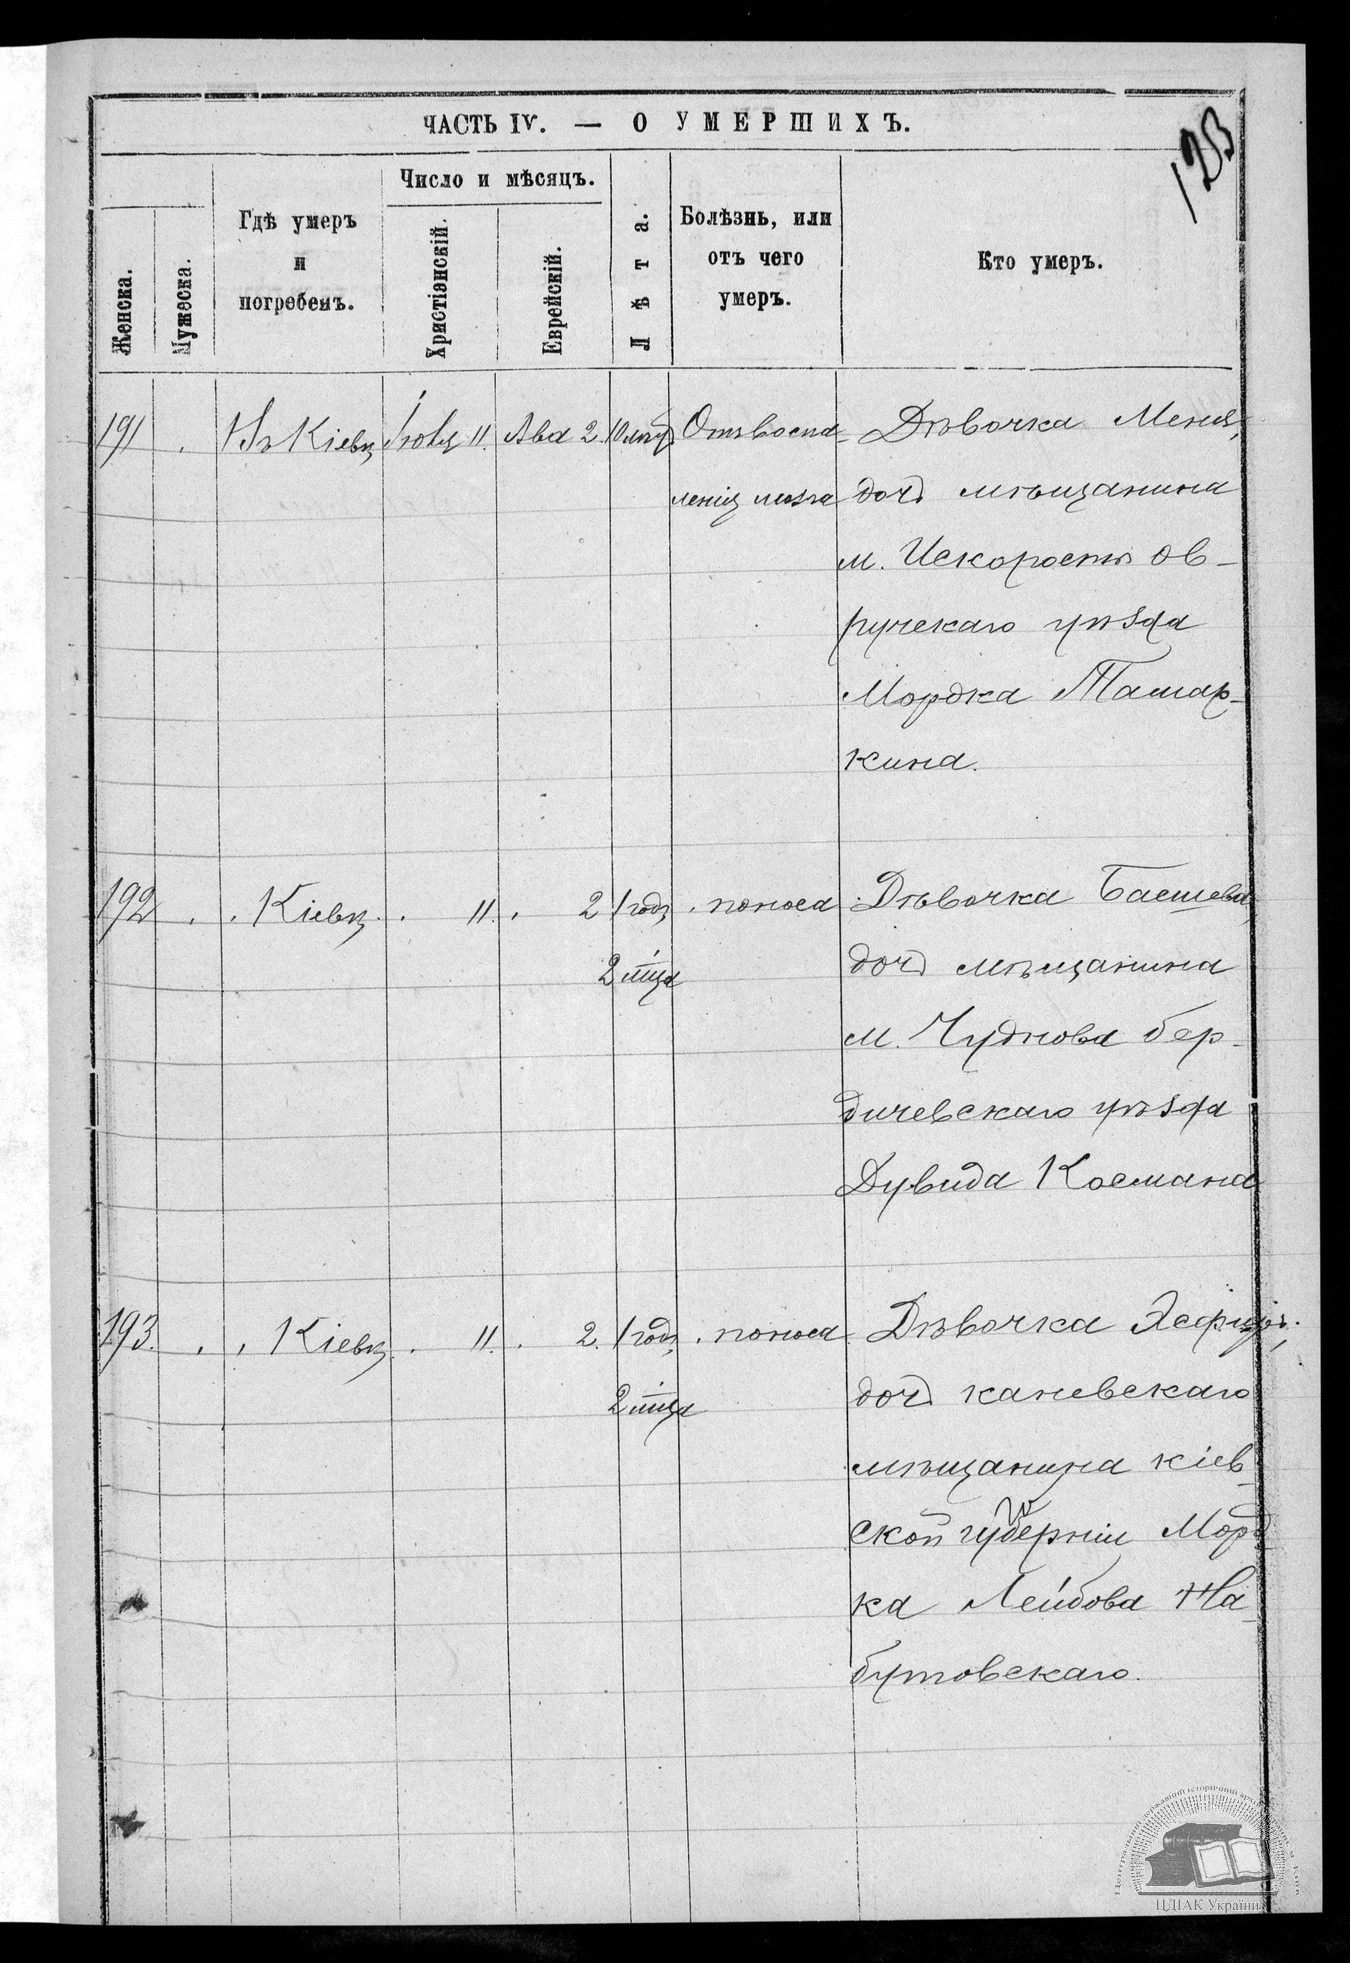 123
ЧАСТЬ IV. — О УМЕРШИХЪ.
Женска.
Мужеска.
Гдѣ умеръ
и
погребенъ.
Число и мѣсяцъ.
Христіэнскій.
Еврейскій.
Лѣта.
Болѣзнь, или
отъ чего
умеръ.
Кто умеръ.
191 Въ Кіевѣ Іюля 11. Ава 2. 10 лѣтъ Отъ воспа- Дѣвочка Меня,
ленія мозга дочь мѣщанина
м. Искорость Ов-
ручскаго уѣзда
Мордка Тамар-
кина.
192 Кіевѣ 11. 2 1 года поноса Дѣвочка Басшева,
2 мца дочь мѣщанина
м. Чуднова бер-
дичевскаго уѣзда
Дувида Космана
193. Кіевѣ 11. 2. 1 года поноса Дѣвочка Эсфирь,
2 мца дочь каневскаго
мѣщанина кіев-
ской губерніи Морд
ка Лейбова На-
бутовскаго.
ЦДІАК України